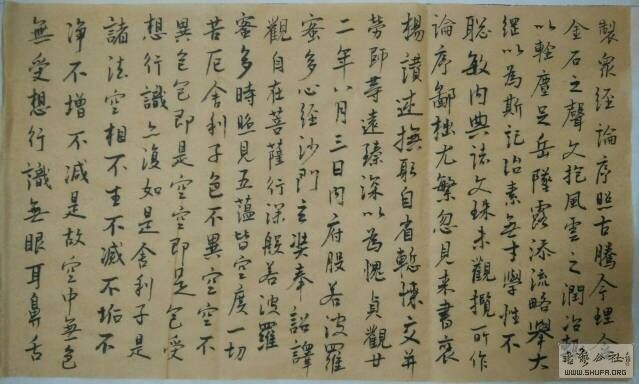 製眾經論序照古騰今理含
金石之聲文抱風雲之潤治
以輕塵足岳墜露添流略舉大
綱以為斯記治素無才學性不
聰敏內典諸文殊未觀攬所作
論序鄙拙尤繁忽見來書褒
揚讚述撫躬自省慙悚交并
勞師等遠臻深以為愧貞觀廿
二年八月三日內府般若波羅
蜜多心經沙門玄奘奉詔譯
觀自在菩薩行深般若波羅
蜜多時照見五蘊皆空度一切
苦厄舍利子色不異空空不
異色色即是空空即是色受
想行識亦復如是舍利子是
諸法空相不生不滅不垢不
淨不增不減是故空中無色
無受想行識無眼耳鼻舌
WWW.SHUFA.ORG